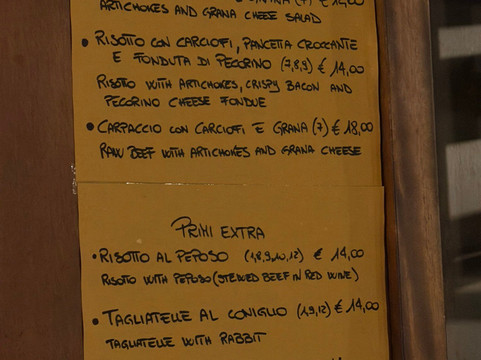 (7) € 14,00
ARTICHOKES AND GRANA CHEESE SALAD
• RISOTTO CON CARCIOFI, PANCETTA CROCCANTE
E FONDUTA DI PECORINO (7,8,9) € 14,00
RISOTTO WITH ARTICHOKES, CRISPY BACON AND
PECORINO CHEESE FONDUE
• CARPACCIO CON CARCIOFI E GRANA (7) € 18,00
RAW BEEF WITH ARTICHOKES AND GRANA CHEESE
PRIMI EXTRA
• RISOTTO AL PEPOSO (1,8,9,10,12) € 14,00
RISOTTO WITH PEPOSO (STEWED BEEF IN RED WINE)
• TAGLIATELLE AL CONIGLIO (1,9,12) € 14,00
TAGLIATELLE WITH RABBIT